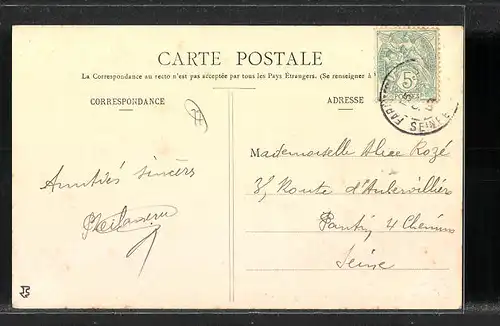 CARTE POSTALE
La Correspondance au recto n'est pas acceptée par tous les Pays Étrangers. (Se renseigner à
CORRESPONDANCE
ADRESSE
5c
SEINE
Amitiés sincères
Mademoiselle Alice Rozé
8, Route d'Aubervilliers
Pantin 4 Chemins
Seine